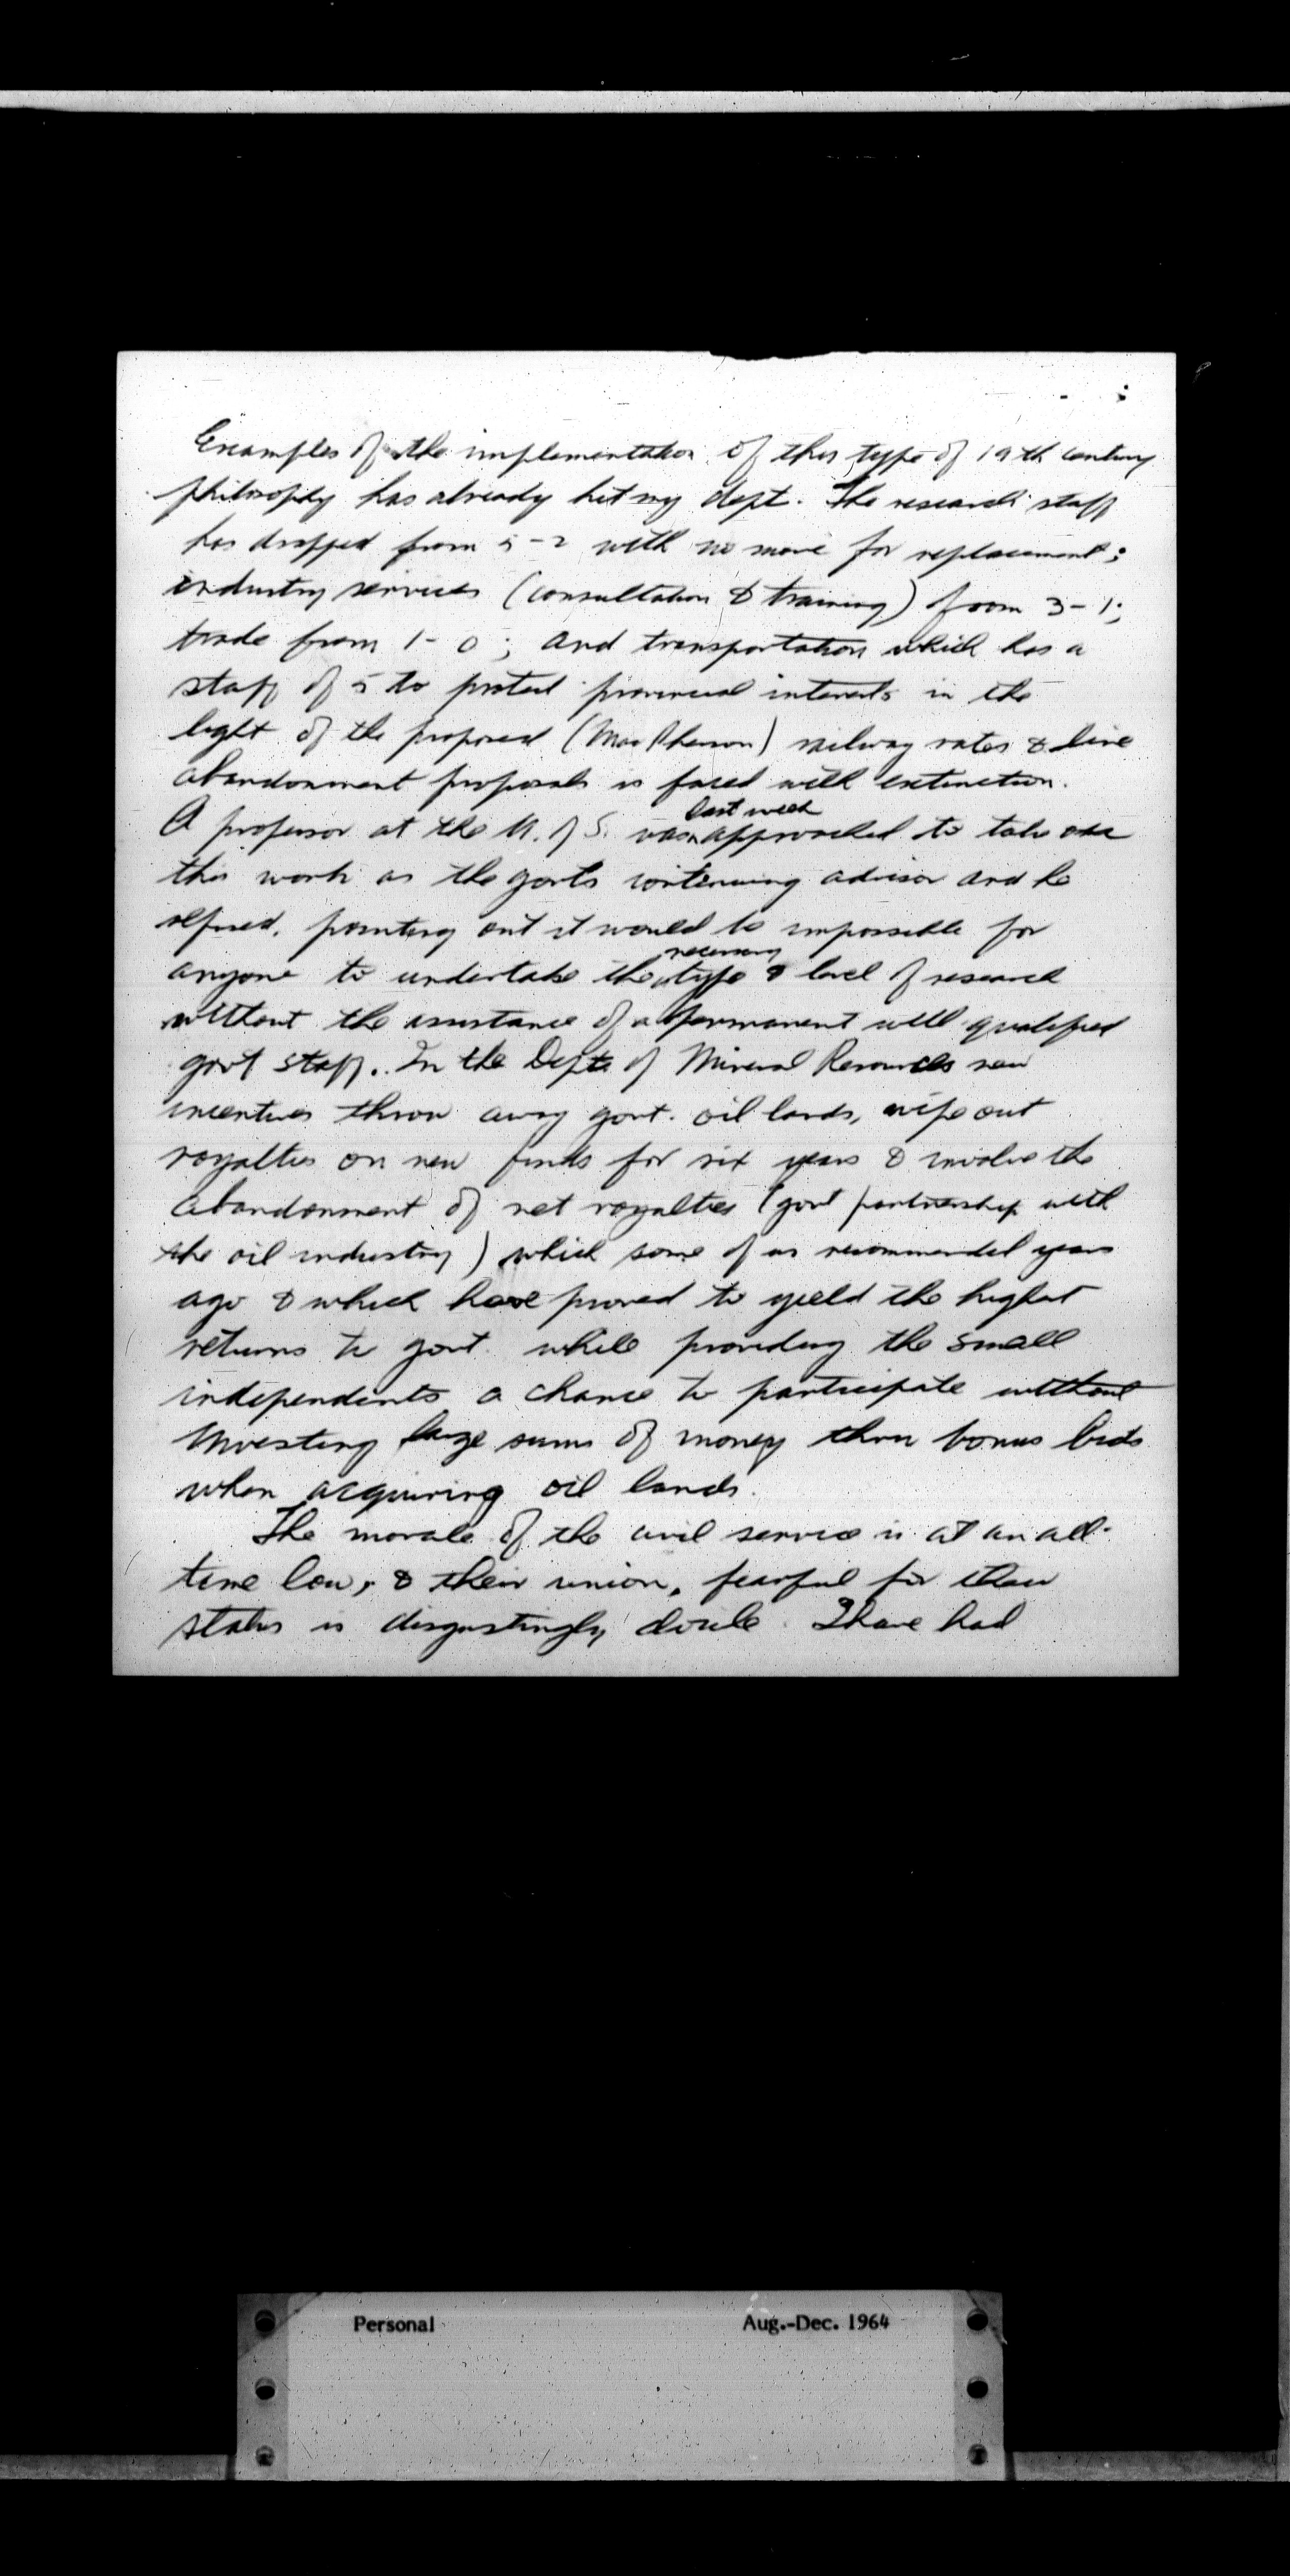 Examples of the implementation of this type of 19th century
philosophy has already hit my dept. The research staff
has dropped from 5-2 with no move for replacement;
industry services (consultation & training) from 3-1;
trade from 1-0; and transportation which has a
staff of 5 to protect provincial interests in the
light of the proposed (MacPherson) railway rates & line
abandonment proposals is faced with extinction.
A professor at the U. of S. was last week approached to take over
this work as the govt's continuing advisor and he
refused, pointing out it would be impossible for
anyone to undertake the necessary type & level of research
without the assistance of a permanent well qualified
govt staff. In the Dept. of Mineral Resources new
incentives throw away govt. oil lands, wipe out
royalties on new finds for six years & involve the
abandonment of net royalties (govt partnership with
the oil industry) which some of us recommended years
ago & which have proved to yield the highest
returns to govt. while providing the small
independents a chance to participate without
investing large sums of money thru bonus bids
when acquiring oil lands.
The morale of the civil service is at an all-
time low, & their union, fearful for their
status is disgustingly docile. I have had
Personal Aug.-Dec. 1964